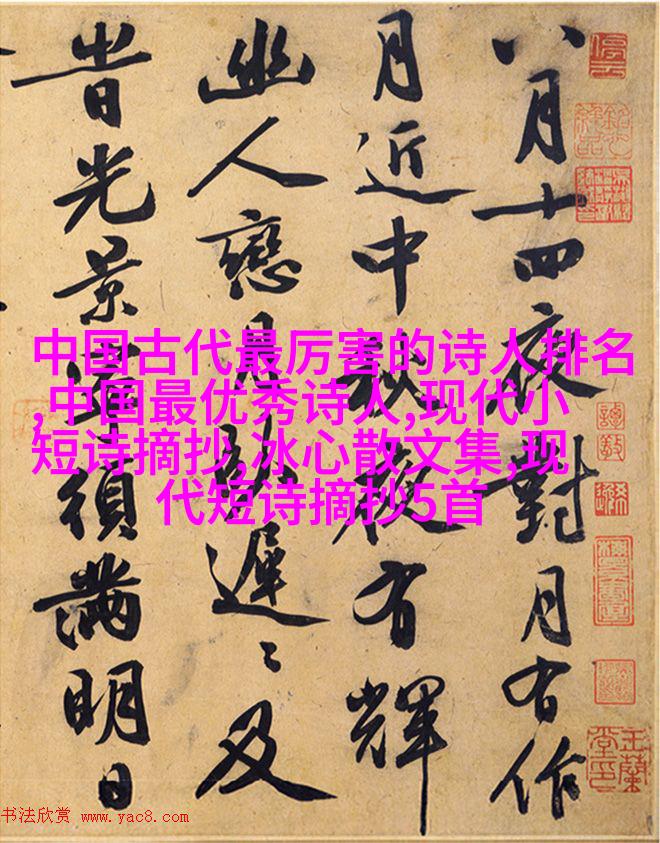 八月十四夜對月有作
月近中秋夜有輝
幽人戀月臥遲〻及
旹光景還須滿明日
中国古代最厉害的诗人排名
,中国最优秀诗人,现代小
短诗摘抄,冰心散文集,现
代短诗摘抄5首
停雲
玉蘭堂印
书法欣赏 www.yac8.com